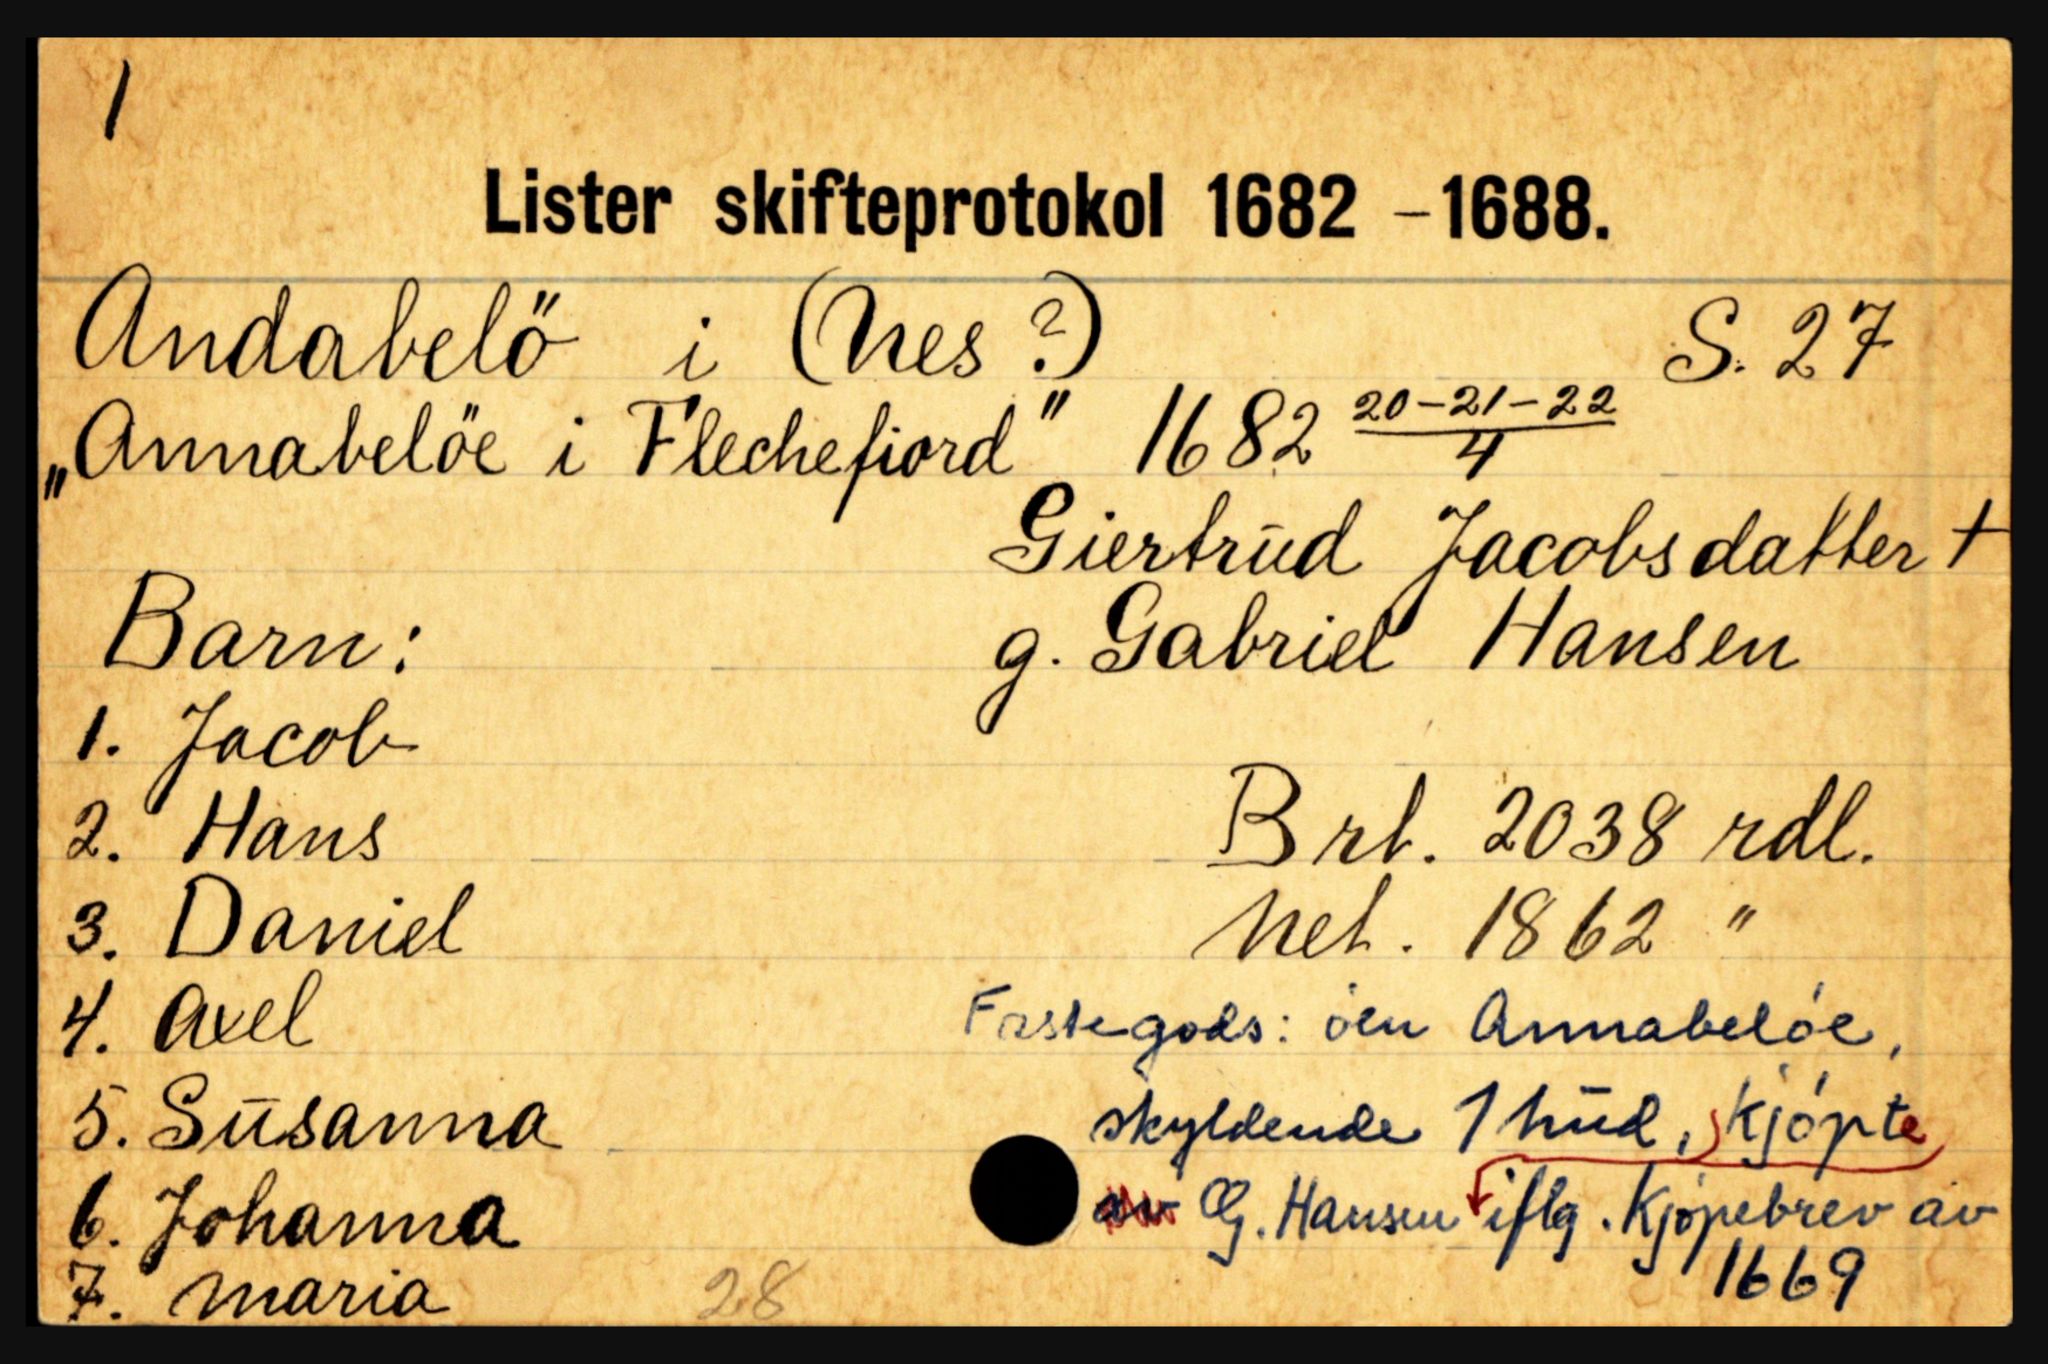 1
Lister skifteprotokol 1682 - 1688.
Andabelö i (Nes?) S. 27
„Annabelöe i Flechefiord" 1682 20-21-22/4
Giertrūd Jacobsdatter +
Barn: g. Gabriel Hansen
1. Jacob
2. Hans Brt. 2038 rdl.
3. Daniel Net. 1862 "
4. Axel Fastegods: öen Annabelöe,
5. Sūsanna skyldende 1 hūd, kjöpte
6. Johanna av G. Hansen iflg. Kjöpebrev av
1669
7. Maria 28